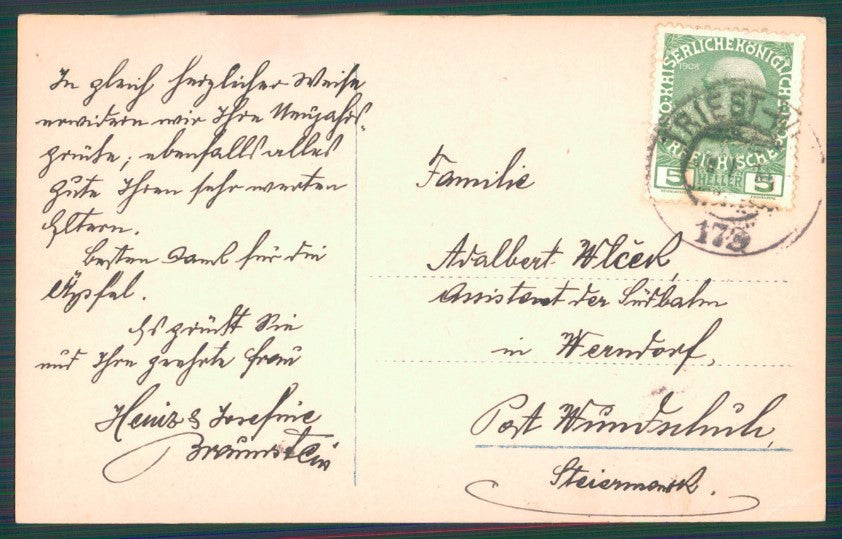 In gleich herzlicher Weise
erwidern wir Ihre Neujahrs-
grüße; ebenfalls alles
Gute Ihren sehr werten
Eltern.
Besten Dank für die
Äpfel.
Es grüßt Sie
und Ihre geehrte Frau
Heinz & Josefine
Braunstein
Familie
Adalbert Wlček,
Assistent der Südbahn
in Werndorf,
Post Wundschuh,
Steiermark.
KAISERLICHE KÖNIGLICHE
1908
5 HELLER 5
TRIEST
17